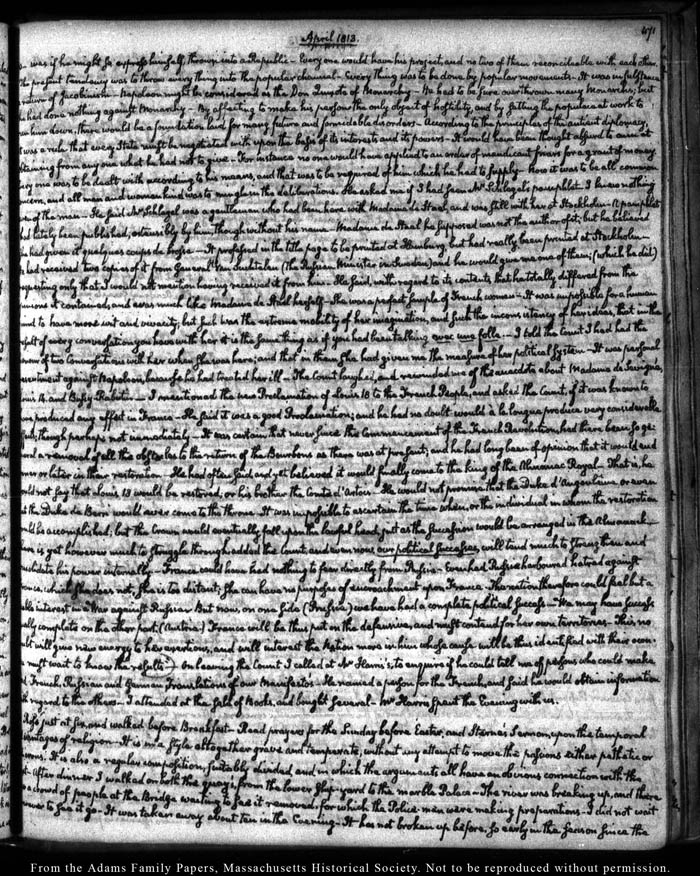 April 1813.
471
was if he might so express himself, thrown into a Republic - Every one would have his project, and no two of them reconcileable with each other.
The present tendency was to throw every thing into the popular channel - Every thing was to be done by popular movements - It was in substance
of Jacobinism - Napoleon might be considered as the Don Quixote of Monarchy - He had to be sure overthrown many Monarchs; but
he had done nothing against Monarchy - By affecting to make his person the only object of hostility, and by setting the populace at work to
him down, there would be a foundation laid for many future and formidable disorders - According to the principles of the antient diplomacy,
it was a rule that every State must be negotiated with upon the basis of its interests and its powers - It would have been thought absurd to aim at
obtaining from any one what he had not to give - For instance no one would have applied to an order of mendicant friars for a grant of money
every one was to be dealt with according to his means, and that was to be required of him which he had to supply - Now it was to be all common
concern, and all man and woman kind was to mingle in the deliberations. He asked me if I had seen Mr Schlegel's pamphlet - I knew nothing
of the man - He said Mr Schlegel was a gentleman who had been here with Madame de Stael, and was still with her at Stockholm - A pamphlet
had lately been published, ostensibly by him, though without his name - Madame de Stael he supposed was not the author of it; but he believed
had given it quelques coups de brosse - It professed in the title page to be printed at Hamburg, but had really been printed at Stockholm
had received two copies of it from General Van Suchtelen (the Russian Minister in Sweden) and he would give me one of them; (which he did)
requesting only that I would not mention having received it from him - He said, with regard to its contents that he totally differed from the
opinions it contained, and was much like Madame de Stael herself - She was a perfect sample of French women - It was impossible for a human
to have more wit and vivacity; but such was the extreme mobility of her imagination, and such the inconsistency of her ideas, that in the
result of every conversation you have with her it is the same thing as if you had been talking avec une folle. - I told the Count I had had the
honour of two Conversations with her when she was here; and that in them she had given me the measure of her political System - It was personal
resentment against Napoleon, because he had treated her ill - The Count laughed, and reminded me of the anecdote about Madame de Sevigné,
Louis 14 and Bussy-Rabutin - I mentioned the new Proclamation of Louis 18 to the French People, and asked the Count, if it was known to
have produced any effect in France - He said it was a good Proclamation; and he had no doubt would à la longue produce very considerable
though perhaps not immediately - It was certain that never since the Commencement of the French Revolution, had there been so
a removal of all the obstacles to the return of the Bourbons as there was at present; and he had long been of opinion that it would end
sooner or later in their restoration - He had often said and yet believed it would finally come to the King of the Almanac Royal - That is, he
would not say that Louis 18 would be restored, or his brother the Comte d'Artois - He would not promise that the Duke d'Angouleme or even
the Duke de Berri would ever come to the throne - It was impossible to ascertain the time when, or the individual in whom the restoration
would be accomplished; but the Crown would eventually fall upon the lawful head, just as the succession would be arranged in the Almanack -
is yet however much to struggle through added the Count, and even now, our political successes, will tend much to strengthen and
consolidate his power internally - France could have had nothing to fear directly from Russia - Even had Russia harboured hatred against
France, which she does not, she is too distant; she can have no purposes of encroachment upon France - The nation therefore could feel but a
interest in a War against Russia - But now, on one side (Prussia) we have had a complete political success - We may have success
complete on the other part. (Austria) France will be thus put on the defensive, and must contend for her own territories - This no
doubt will give new energy to her exertions, and will interest the Nation more in him whose cause will be thus identified with their own.
must wait to know the results - On leaving the Count I called at Mr Harris's, to enquire if he could tell me of persons who could make
French, Russian and German Translations of our Manifestos - He named a person for the French, and said he would obtain information
with regard to the others - I attended at the sale of Books, and bought several - Mr Harris spent the Evening with us.
Rose just at six, and walked before Breakfast - Read prayers for the Sunday before Easter, and Sterne's Sermon, upon the temporal
advantages of religion - It is in a style altogether grave and temperate, without any attempt to move the passions either pathetic or
It is also a regular composition, suitably divided, and in which the arguments all have an obvious connection with the
After dinner I walked on both the quays, from the lower ship-yard to the marble Palace - The river was breaking up, and there
a crowd of people at the Bridge waiting to see it removed, for which the Police-men were making preparations - I did not wait
to see it go - It was taken away about ten in the Evening - It has not broken up before, so early in the season since the
From the Adams Family Papers, Massachusetts Historical Society. Not to be reproduced without permission.